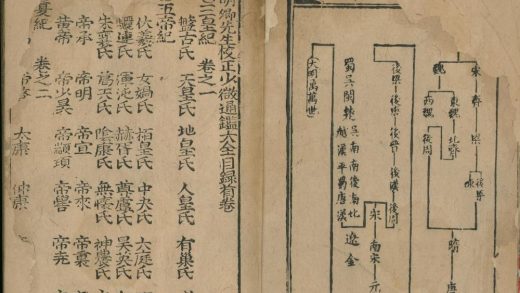 宋 齊 梁 後梁 陳 隋 唐
魏 東魏 北齊
西魏 後周
後梁 後唐 後晉 後漢 後周 宋 南宋 元
蜀 吳 閩 楚 吳越 南漢 南平 後蜀 南唐 北漢 遼 金
大明萬萬世
明卿先生校正少微通鑑大全目錄首卷
三皇紀 卷之一
盤古氏 天皇氏 地皇氏 人皇氏 有巢氏
五帝紀
伏羲氏 女媧氏 栢皇氏 中央氏 大庭氏
驪連氏 渾沌氏 赫胥氏 尊盧氏 昊英氏
朱襄氏 葛天氏 陰康氏 無懷氏 神農氏
帝承 帝明 帝宜 帝來 帝裏
黃帝 帝少昊 帝顓頊 帝嚳 帝堯
夏紀 卷之二
太康 仲康